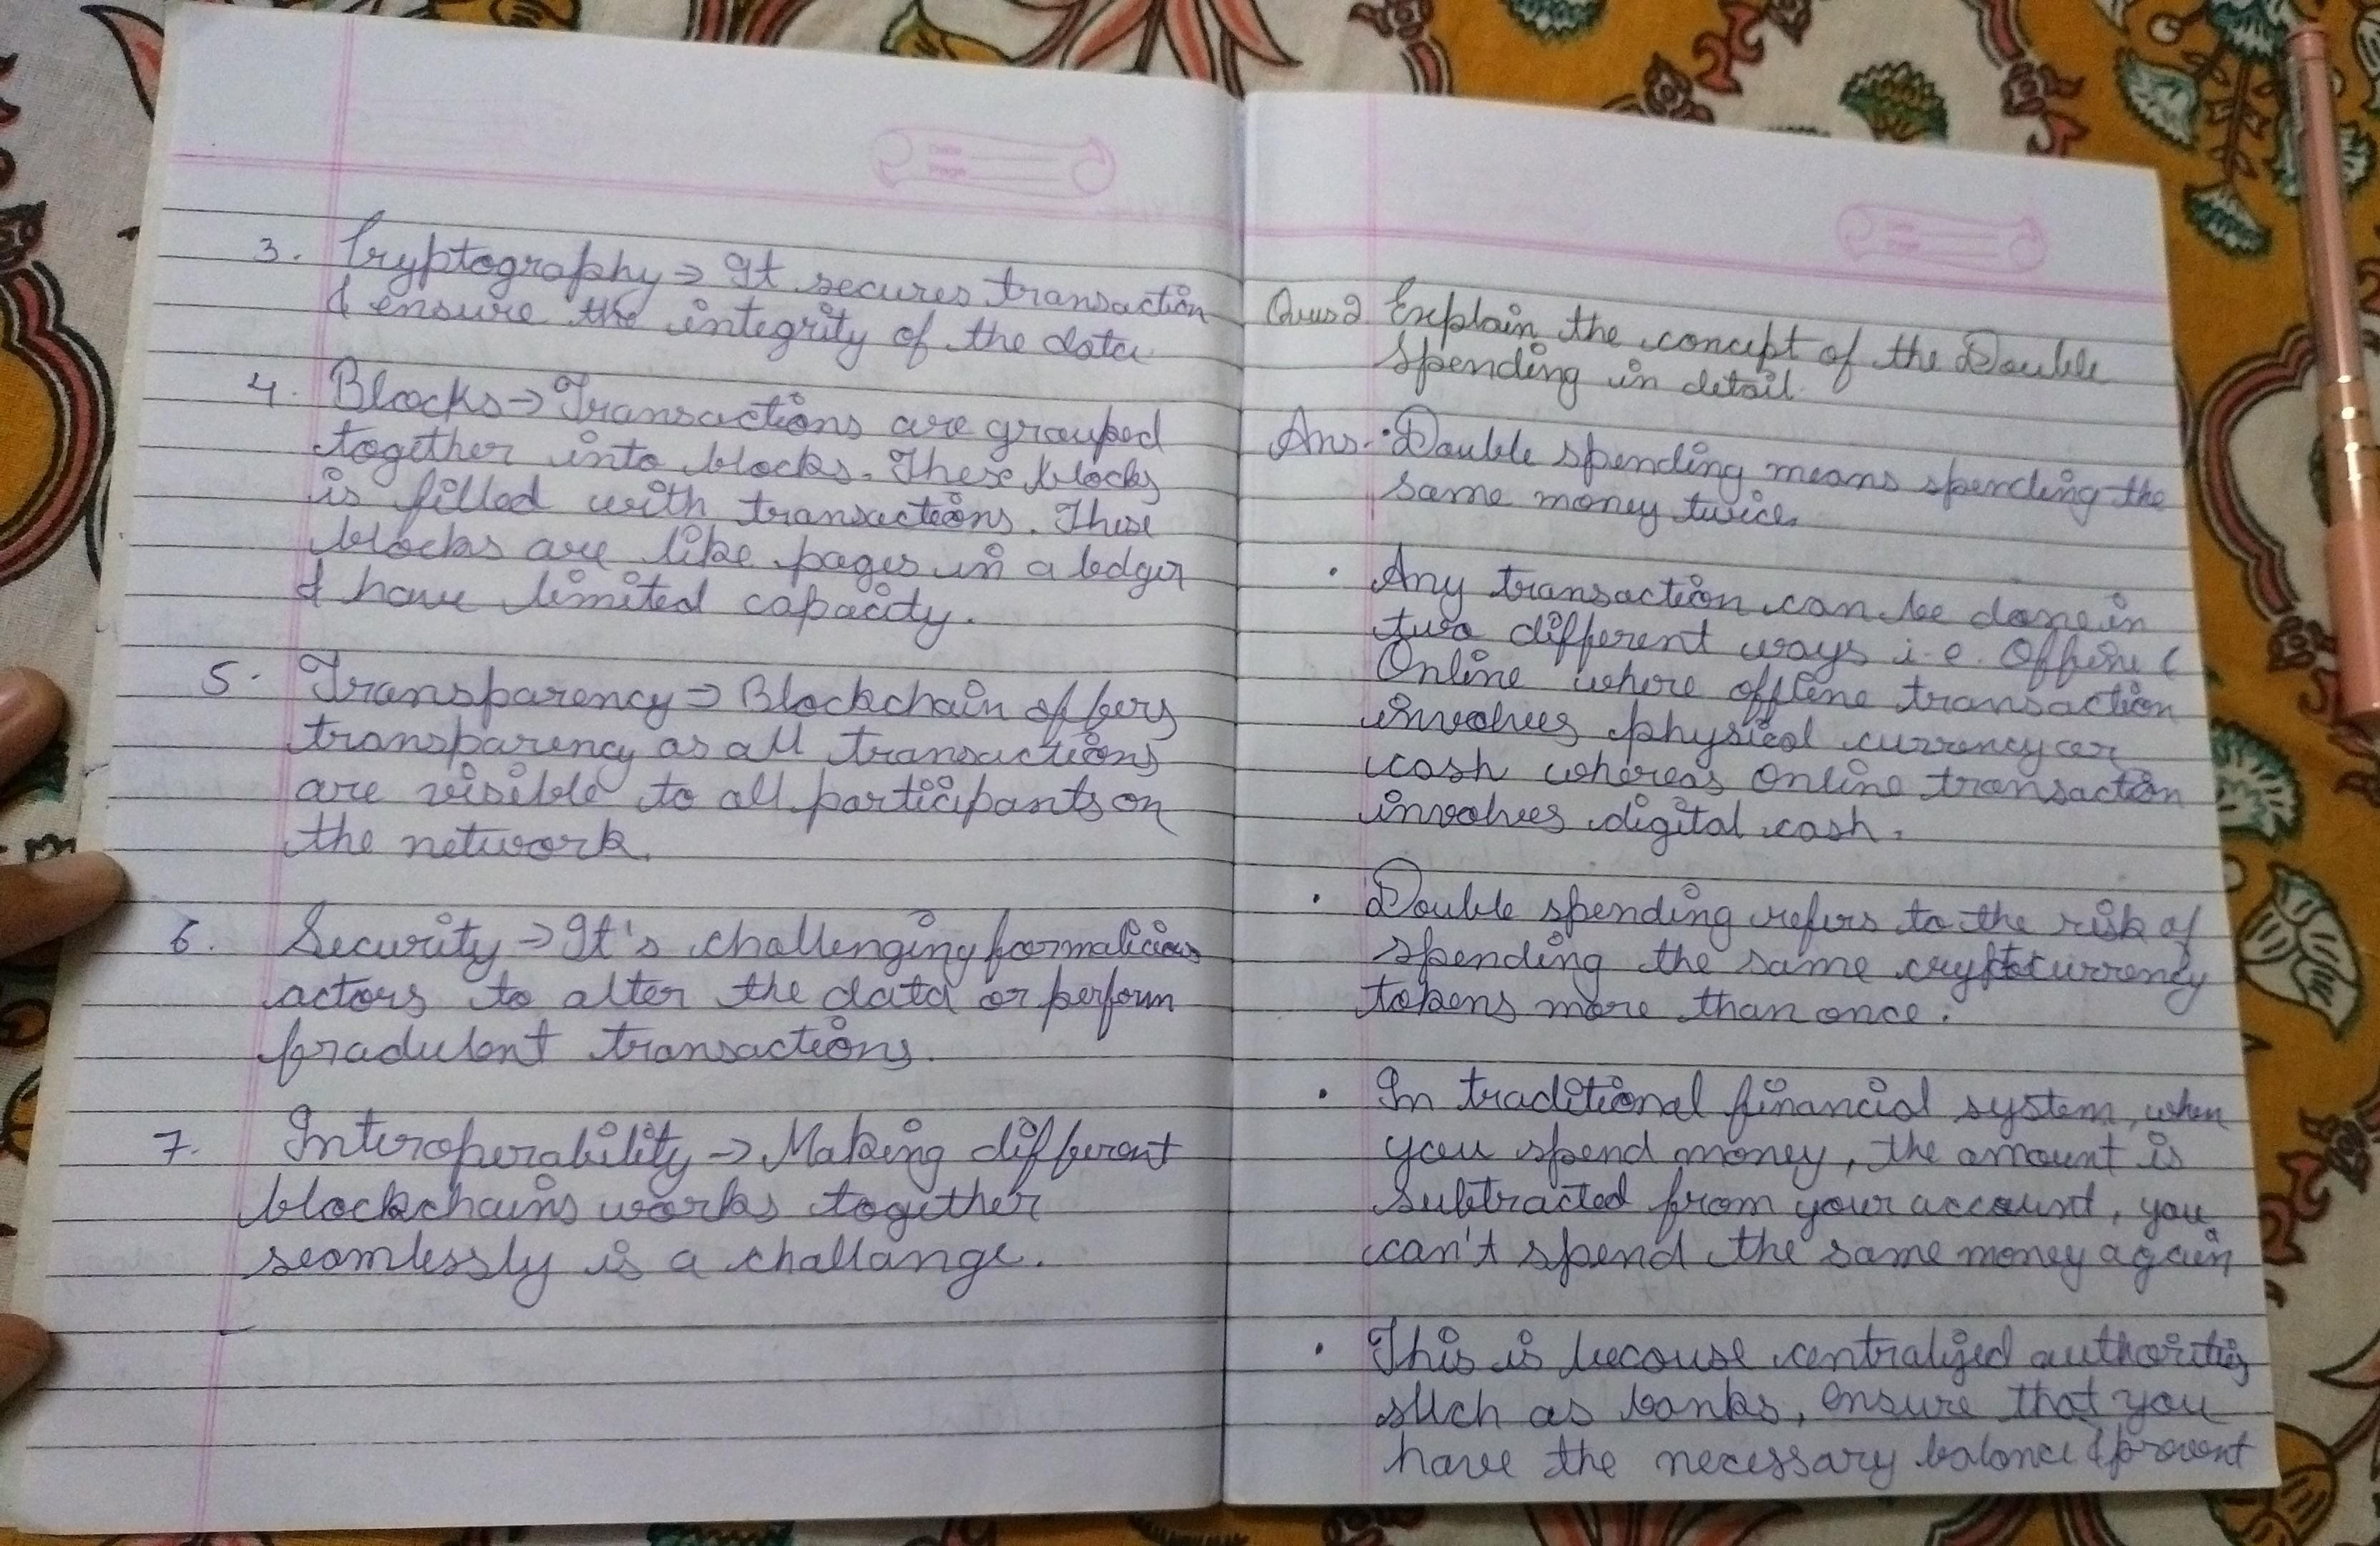 3. Cryptography → It secures transaction
& ensure the integrity of the data
4. Blocks → Transactions are grouped
together into blocks. These blocks
is filled with transactions. These
blocks are like pages in a ledger
& have limited capacity.
5. Transparency → Blockchain offers
transparency as all transactions
are visible to all participants on
the network.
6. Security → It's challenging for malicious
actors to alter the data or perform
fradulent transactions.
7. Interoperability → Making different
blockchains works together
seamlessly is a challange.
Date
Page
Ques 2 Explain the concept of the Double
Spending in detail.
Ans. • Double spending means spending the
same money twice.
• Any transaction can be done in
two different ways i.e. Offline (
Online where offline transaction
involves physical currency or
cash whereas Online transaction
involves digital cash.
• Double spending refers to the risk of
spending the same cryptocurrency
tokens more than once.
• In traditional financial system, when
you spend money, the amount is
subtracted from your account, you
can't spend the same money again
• This is because centralized authorities
such as banks, ensure that you
have the necessary balance & prevent